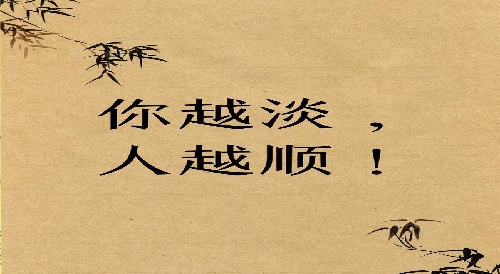 你越淡，
人越顺！